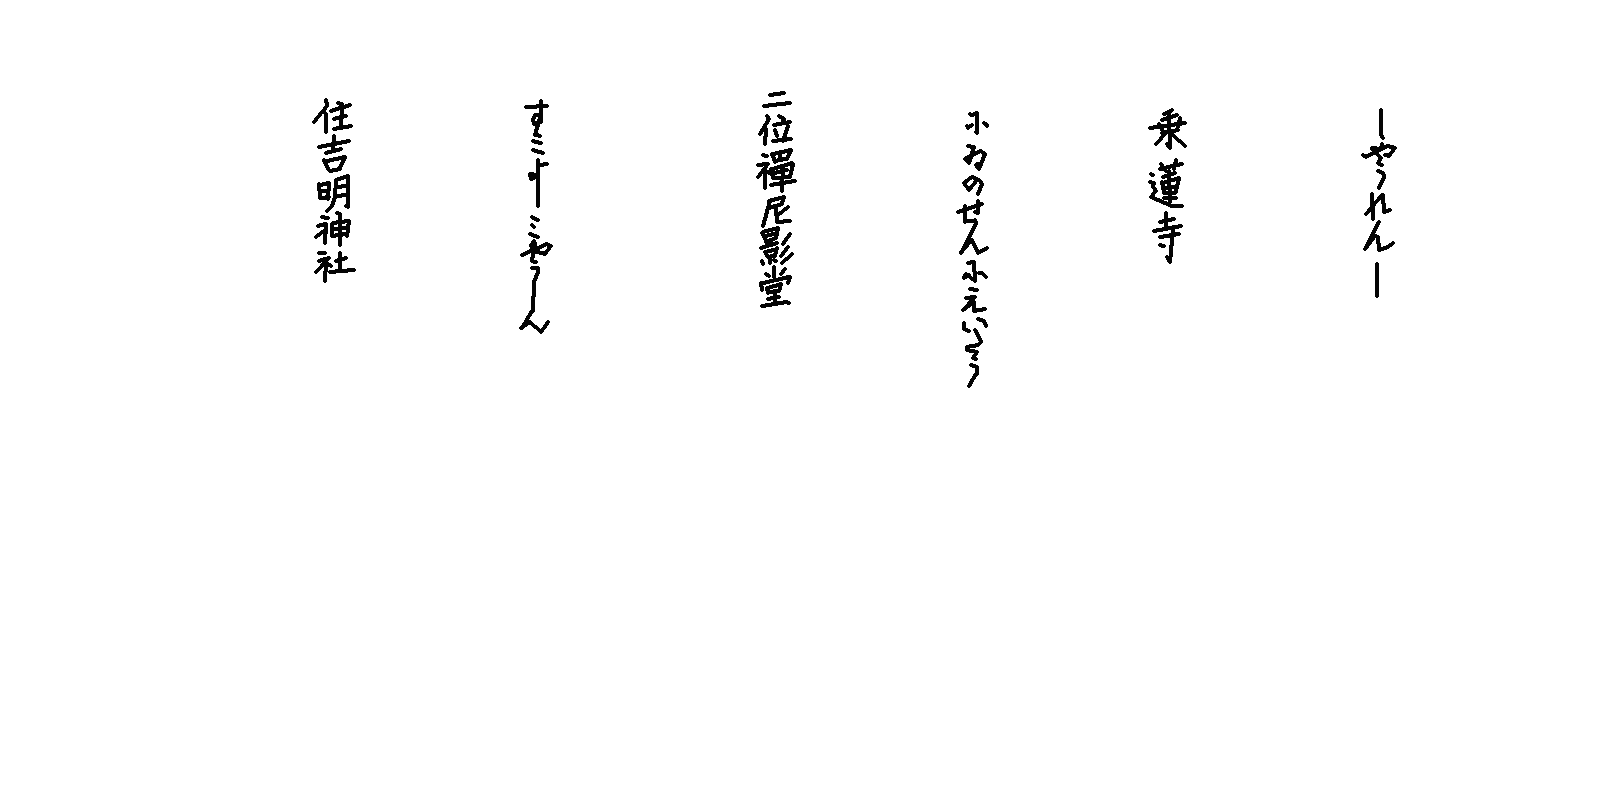 しやうれんし
乗蓮寺
にゐのせんにえいたう
二位禪尼影堂
すミよしミやうしん
住吉明神社